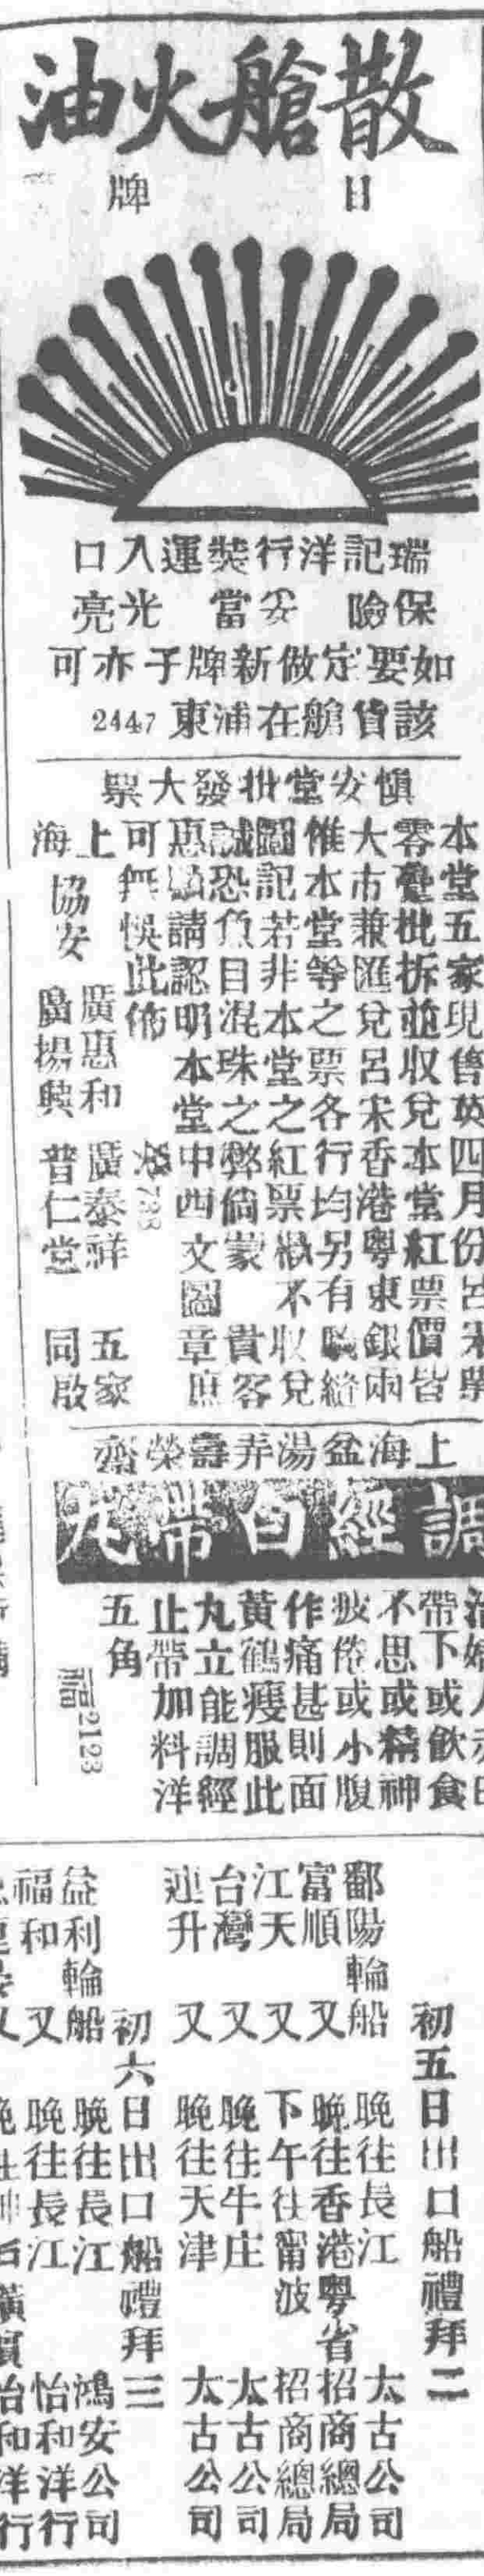 散艙火油
日牌
瑞記洋行裝運入口
保險　妥當　光亮
如要定做新牌子亦可
該貨艙在浦東2447
慎安堂批發大票
本堂五家現售英四月份呂宋
零疊批拆並收兌本堂紅票價皆
大市兼匯兌呂宋香港粵東銀兩
惟本堂等之票各行均另有騎縫
圖記若非本堂之紅票概不收兌
誠恐魚目混珠之弊倘蒙　貴客
惠顧請認明本堂中西文圖章庶
可無悞此佈
上海
協安
廣惠和　廣泰祥　五家
廣揚興　普仁堂　同啟
上海盆湯弄壽榮齋
調經白帶丸
帶下或飲食
不思或精神
疲倦或小腹
作痛甚則面
黃鶴瘦服此
丸立能調經
止帶加料洋
五角
2123
初五日出口船禮拜二
鄱陽輪船　晚往長江　太古公司
富順　又　晚往香港粵省　招商總局
江天　又　下午往甯波　招商總局
台灣　又　晚往牛庄　太古公司
連升　又　晚往天津　太古公司
初六日出口船禮拜三
益利輪船　晚往長江　鴻安公司
福和　又　晚往長江　怡和洋行
又　晚往神戶橫濱　怡和洋行